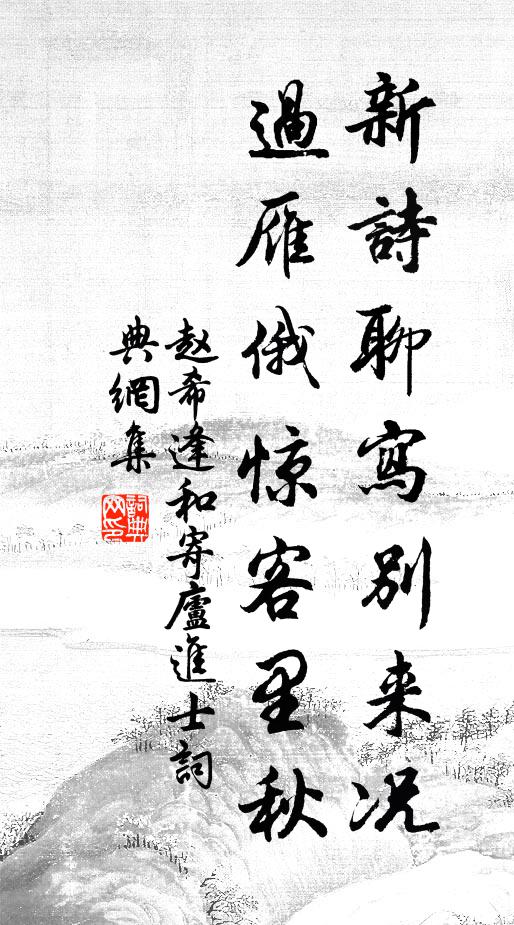 新詩聊寫別来况
過雁俄惊客里秋
赵希逢和寄廬進士詞
典網集
詞典网印